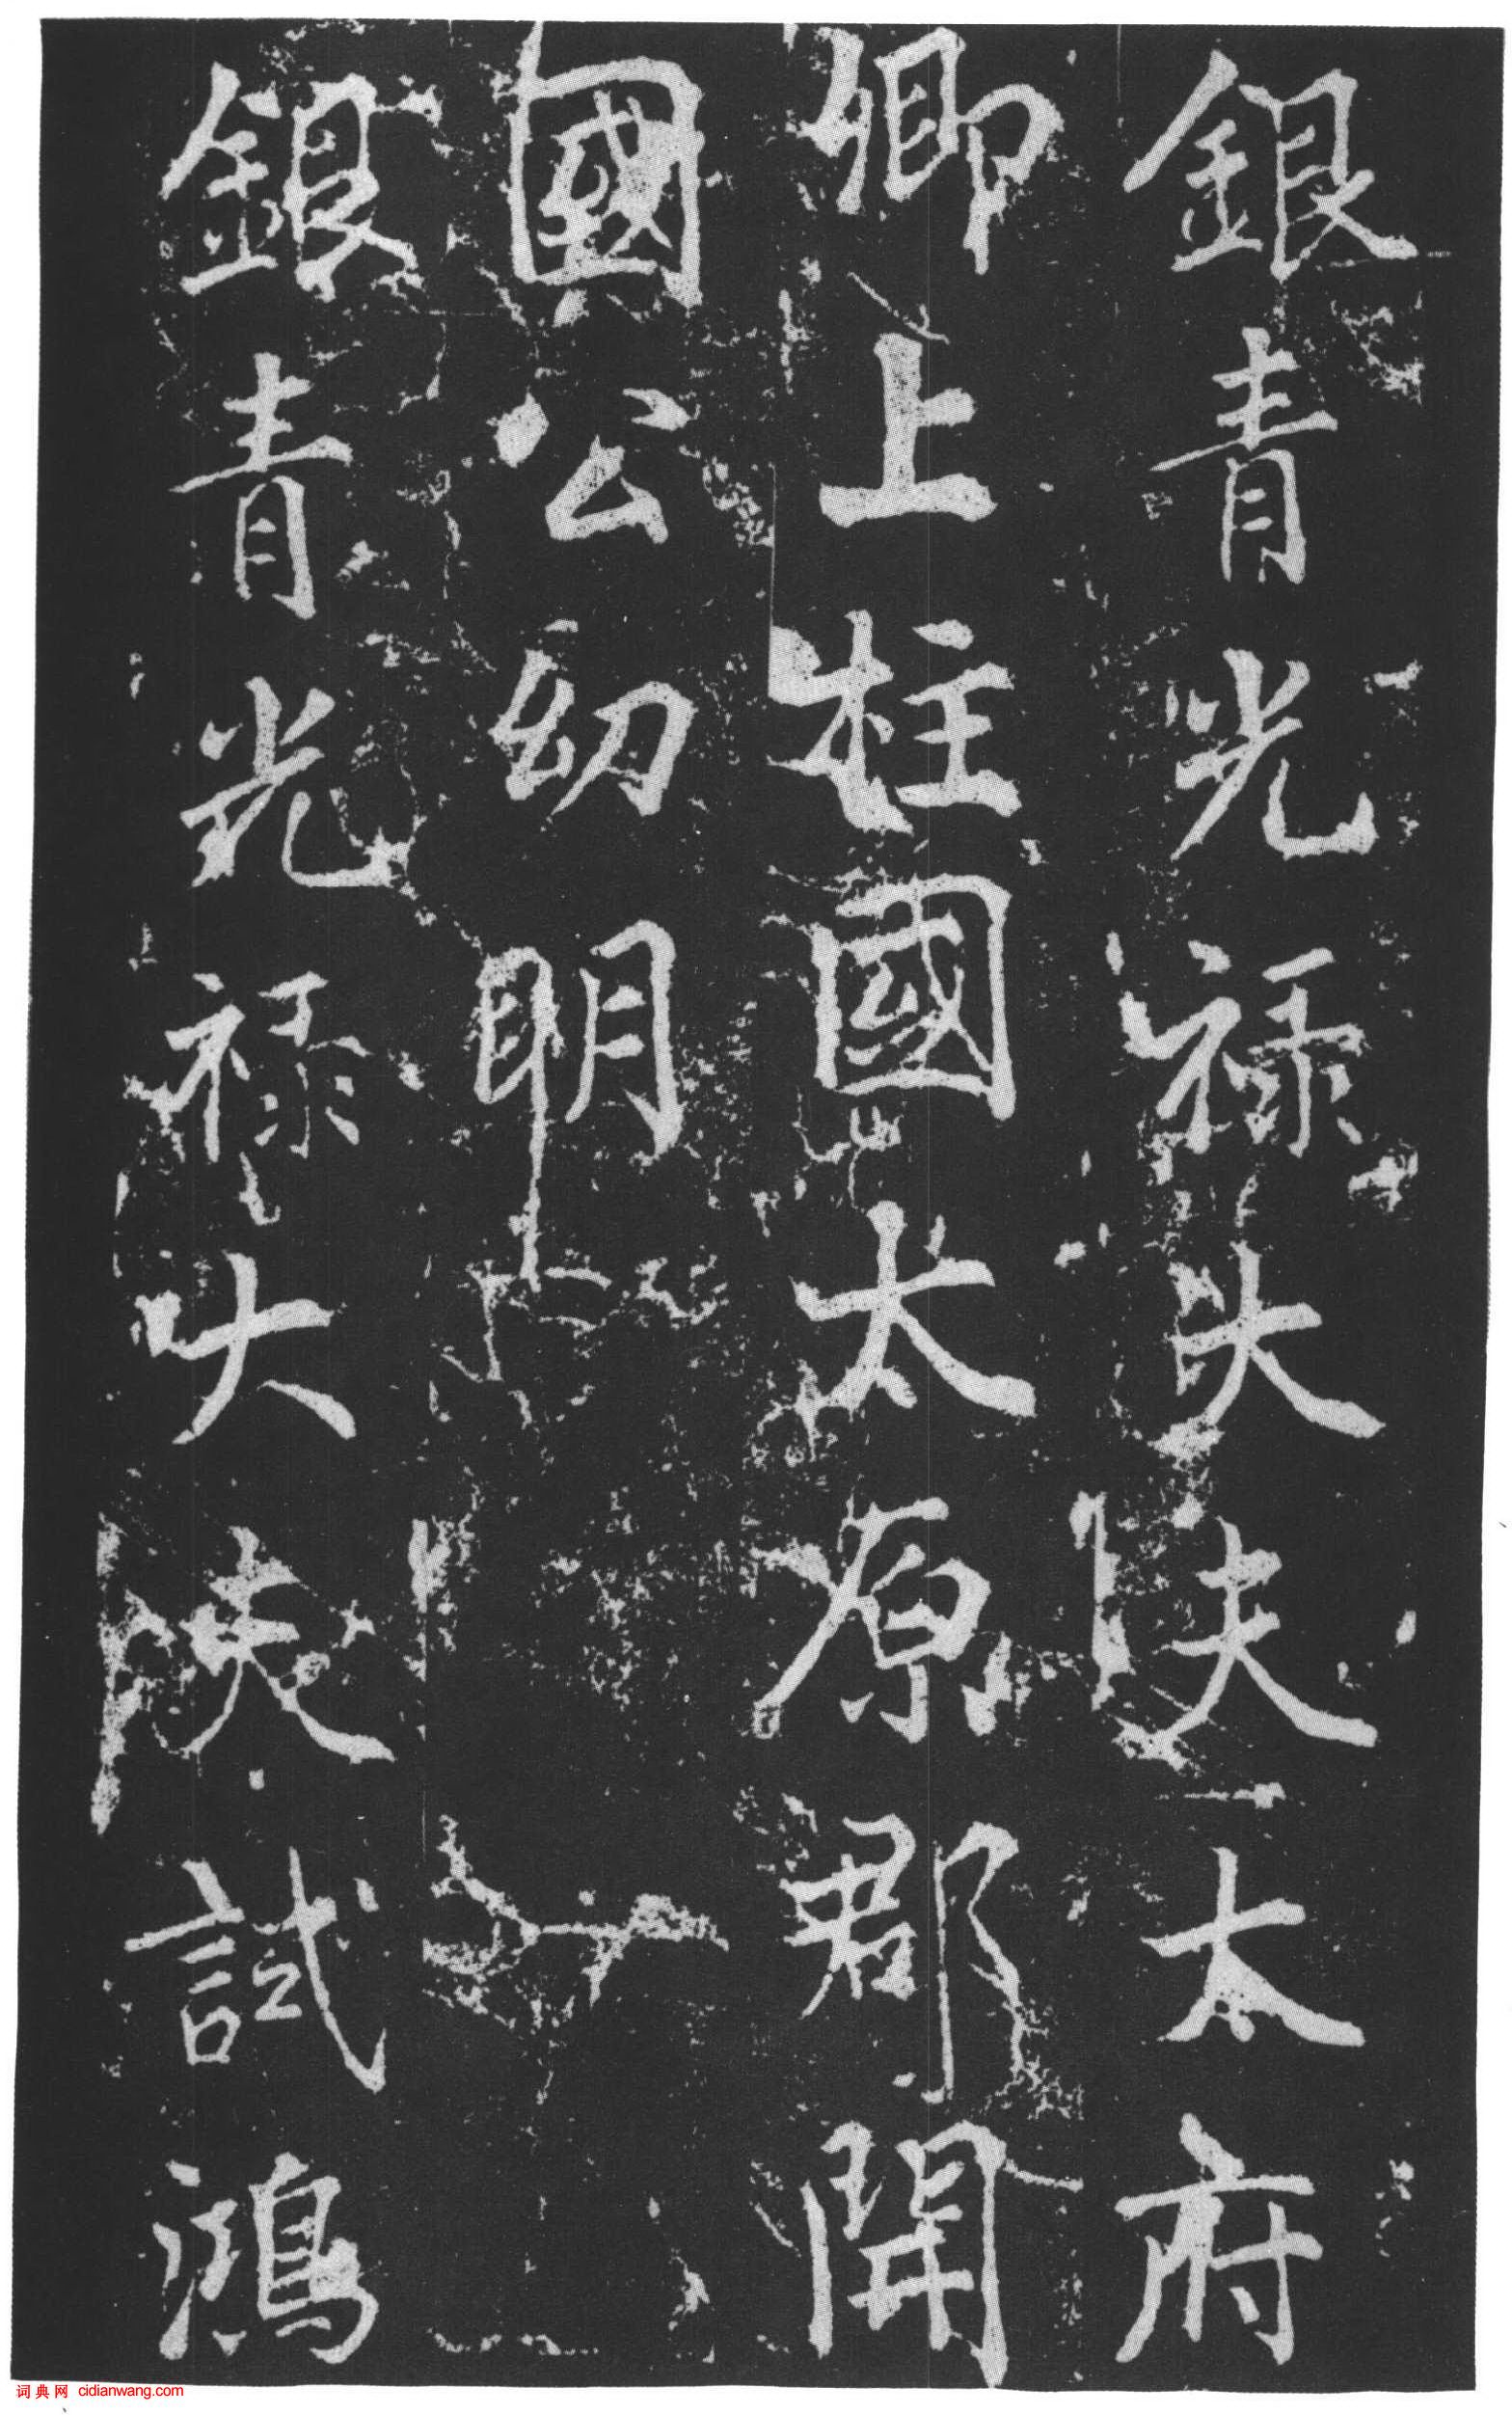 銀青光祿大夫太府
卿上柱國太原郡開
國公幼明
銀青光祿大夫試鴻
词典网 cidianwang.com